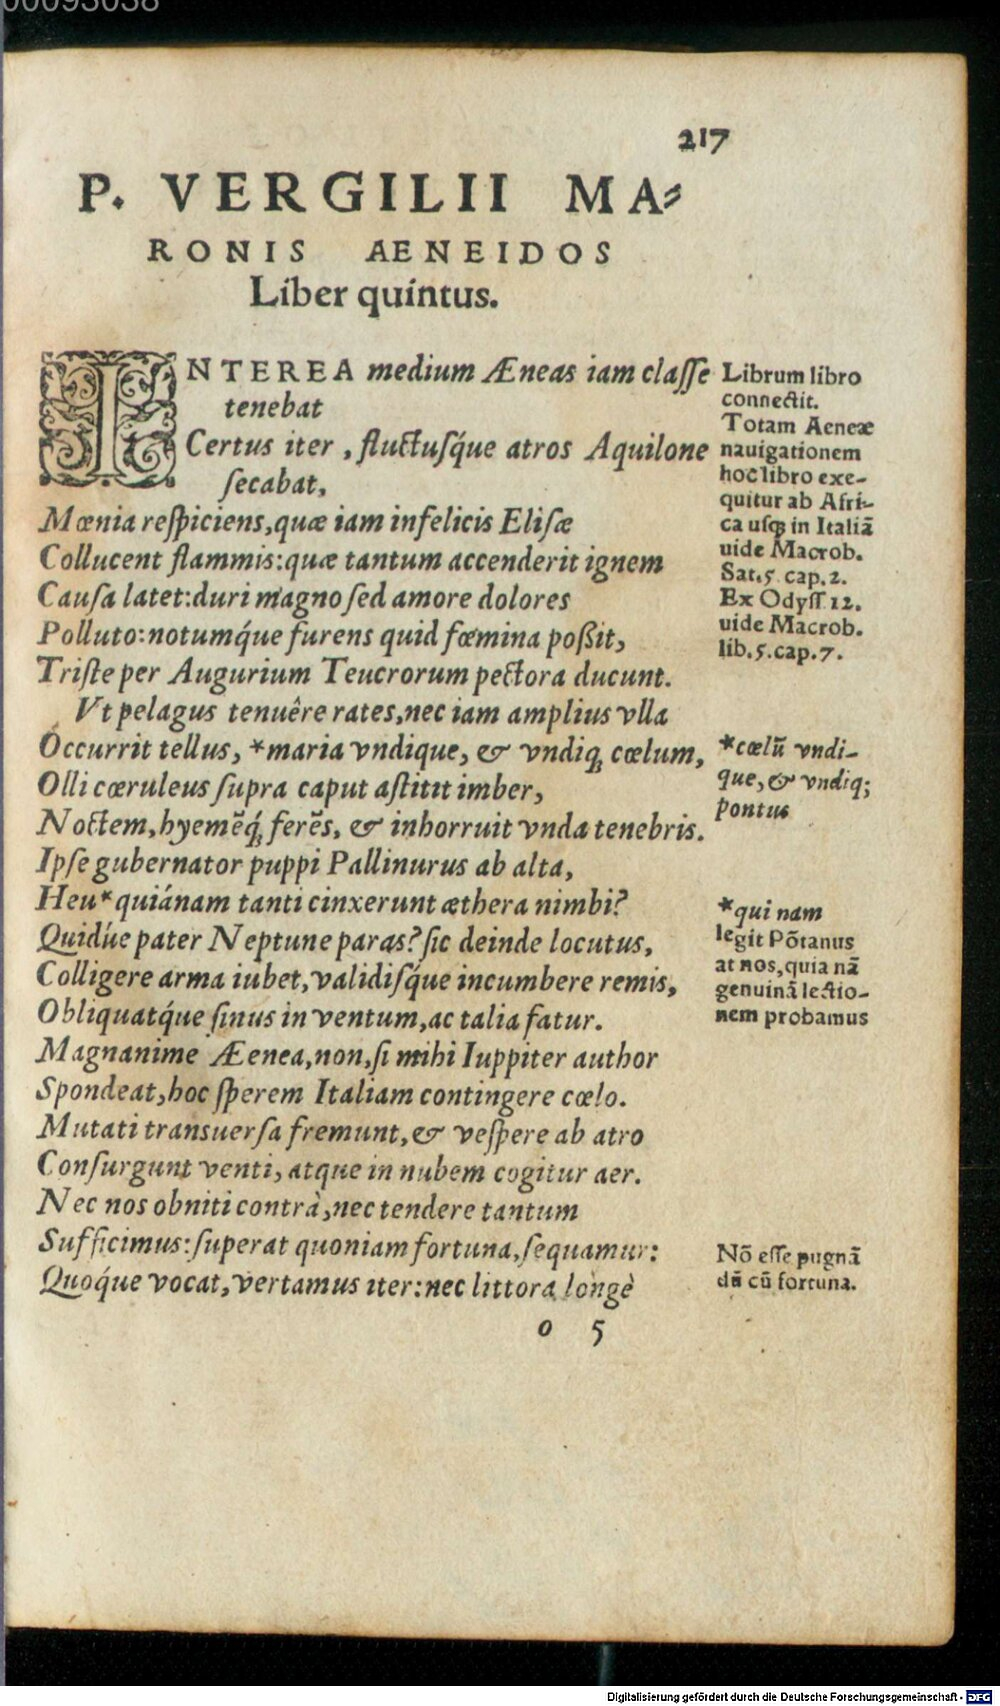 00093038
217
P. VERGILII MA-
RONIS AENEIDOS
Liber quintus.
INTEREA medium Æneas iam claſſe
tenebat
Certus iter, fluctuſq́ue atros Aquilone
ſecabat,
Mœnia reſpiciens, quæ iam infelicis Eliſæ
Collucent flammis: quæ tantum accenderit ignem
Cauſa latet: duri magno ſed amore dolores
Polluto: notumq́ue furens quid fœmina poßit,
Triſte per Augurium Teucrorum pectora ducunt.
Vt pelagus tenuêre rates, nec iam amplius vlla
Occurrit tellus, *maria vndique, & vndiq; cœlum,
Olli cœruleus ſupra caput aſtitit imber,
Noctem, hyemẽq́; ferẽs, & inhorruit vnda tenebris.
Ipſe gubernator puppi Pallinurus ab alta,
Heu *quiánam tanti cinxerunt æthera nimbi?
Quidúe pater Neptune paras? ſic deinde locutus,
Colligere arma iubet, validiſq́ue incumbere remis,
Obliquatq́ue ſinus in ventum, ac talia fatur.
Magnanime Æenea, non, ſi mihi Iuppiter author
Spondeat, hoc ſperem Italiam contingere cœlo.
Mutati transuerſa fremunt, & veſpere ab atro
Conſurgunt venti, atque in nubem cogitur aer.
Nec nos obniti contrà, nec tendere tantum
Sufficimus: ſuperat quoniam fortuna, ſequamur:
Quoq́ue vocat, vertamus iter: nec littora longè
o 5
Librum libro
connectit.
Totam Aeneæ
nauigationem
hoc libro exe-
quitur ab Afri-
ca uſq; in Italiã
uide Macrob.
Sat. 5. cap. 2.
Ex Odyſſ. 12.
uide Macrob.
lib. 5. cap. 7.
*cœlũ vndi-
que, & vndiq;
pontus
*qui nam
legit Põtanus
at nos, quia nã
genuinã lectio-
nem probamus
Nõ eſſe pugnã
dũ cũ fortuna.
Digitalisierung gefördert durch die Deutsche Forschungsgemeinschaft - DFG